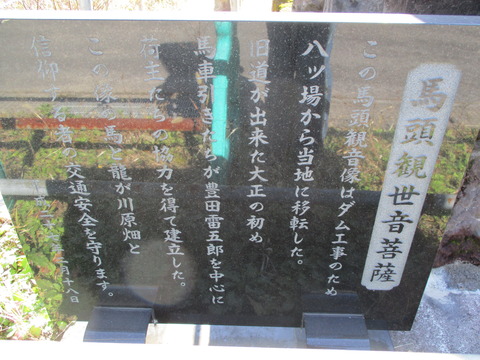 馬頭観世音菩薩
この馬頭観音像はダム工事のため
八ッ場から当地に移転した。
旧道が出来た大正の初め
馬車引きたちが豊田雷五郎を中心に
荷主たちの協力を得て建立した。
この像の馬と龍が川原畑と
信仰する者の交通安全を守ります。
月十八日